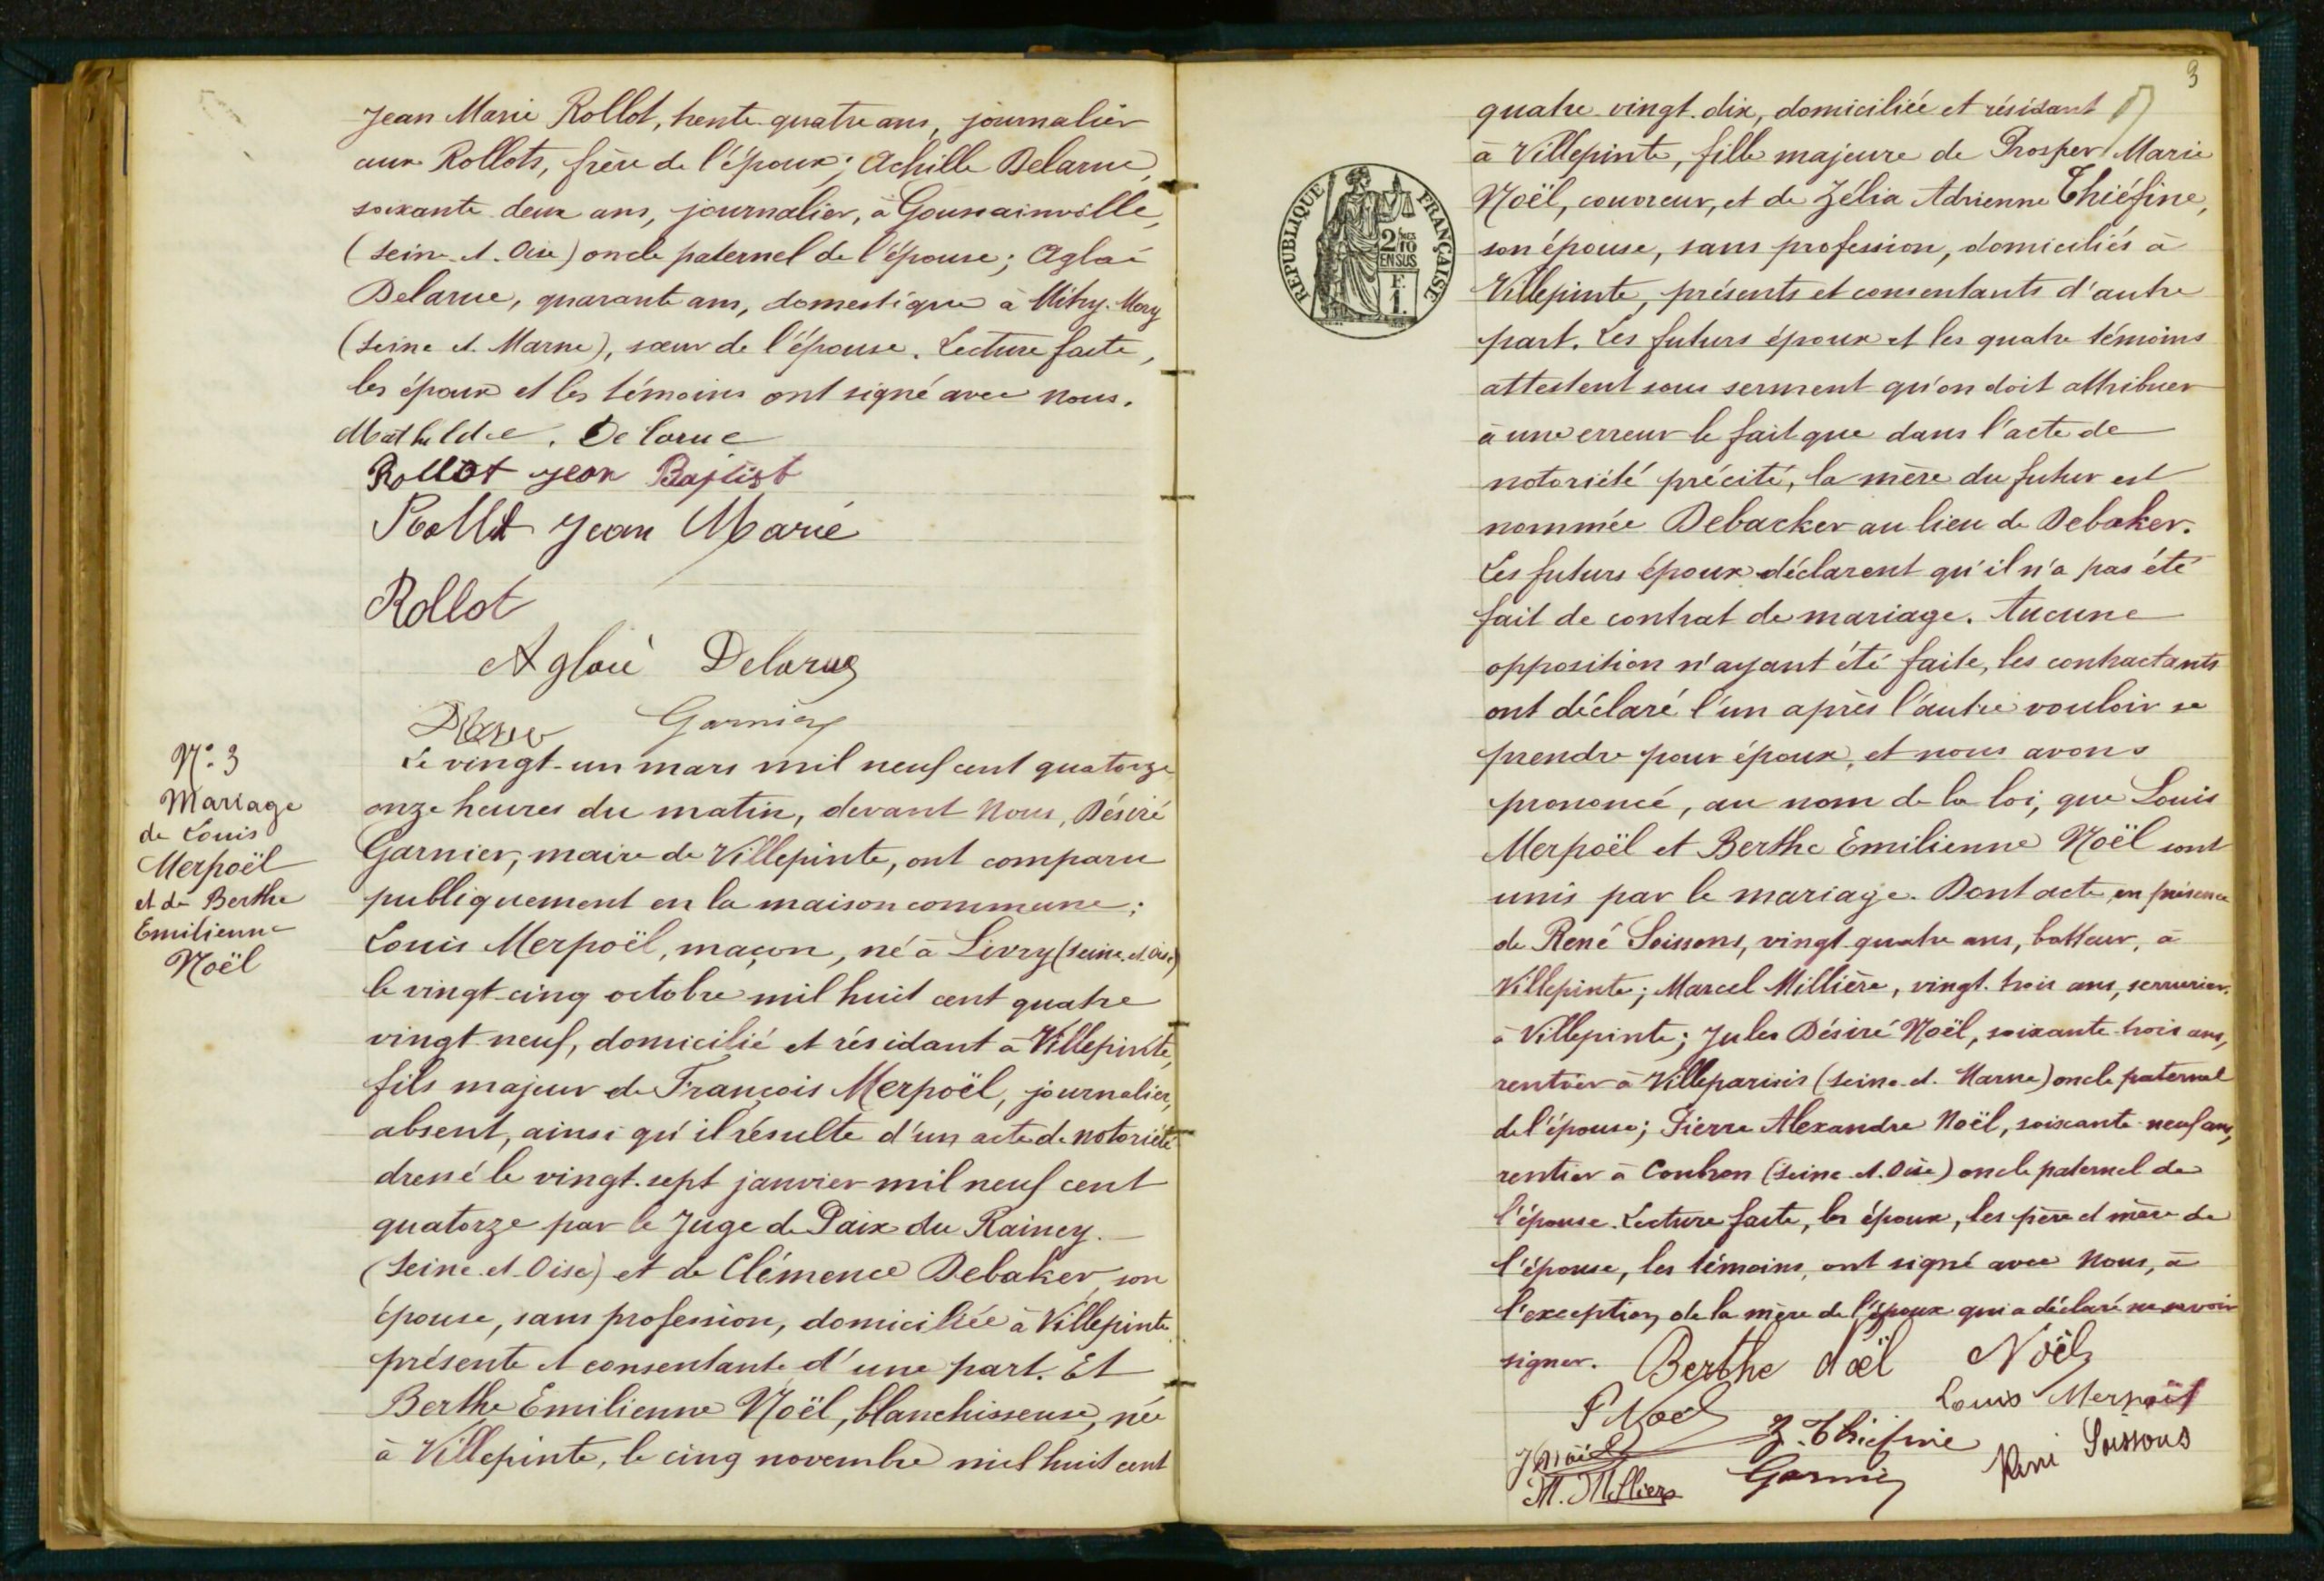 Jean Marie Rollot, trente quatre ans, journalier
aux Rollots, frère de l'époux; Achille Delarue,
soixante deux ans, journalier, à Goussainville,
(Seine et Oise) oncle paternel de l'épouse; Aglaé
Delarue, quarante ans, domestique à Mitry-Mory
(Seine et Marne), sœur de l'épouse. Lecture faite,
les époux et les témoins ont signé avec nous.
Mathilde. Delarue
Rollot jean Baptist
Rollot Jean Marie
Rollot
Aglaé Delarue
Garnier
N° 3
Mariage
de Louis
Merpoël
et de Berthe
Emilienne
Noël
Le vingt-un mars mil neuf cent quatorze
onze heures du matin, devant Nous, Désiré
Garnier, maire de Villepinte, ont comparu
publiquement en la maison commune:
Louis Merpoël, maçon, né à Livry (Seine et Oise)
le vingt-cinq octobre mil huit cent quatre
vingt neuf, domicilié et résidant à Villepinte,
fils majeur de François Merpoël, journalier,
absent, ainsi qu'il résulte d'un acte de notoriété
dressé le vingt-sept janvier mil neuf cent
quatorze par le Juge de Paix du Raincy.
(Seine et Oise) et de Clémence Debaker, son
épouse, sans profession, domiciliée à Villepinte
présente et consentante d'une part. Et
Berthe Emilienne Noël, blanchisseuse, née
à Villepinte, le cinq novembre mil huit cent
3
RÉPUBLIQUE FRANÇAISE
2/10 EN SUS
F. 1.
quatre vingt-dix, domiciliée et résidant
à Villepinte, fille majeure de Prosper Marie
Noël, couvreur, et de Zélia Adrienne Thiéfine,
son épouse, sans profession, domiciliés à
Villepinte, présents et consentants d'autre
part. Les futurs époux et les quatre témoins
attestent sous serment qu'on doit attribuer
à une erreur le fait que dans l'acte de
notoriété précité, la mère du futur est
nommée Debacker au lieu de Debaker.
Les futurs époux déclarent qu'il n'a pas été
fait de contrat de mariage. Aucune
opposition n'ayant été faite, les contractants
ont déclaré l'un après l'autre vouloir se
prendre pour époux, et nous avons
prononcé, au nom de la loi, que Louis
Merpoël et Berthe Emilienne Noël sont
unis par le mariage. Dont acte en présence
de René Soissons, vingt-quatre ans, batteur, à
Villepinte; Marcel Millière, vingt-trois ans, serrurier
à Villepinte; Jules Désiré Noël, soixante-trois ans,
rentier à Villeparisis (Seine et Marne) oncle paternel
de l'épouse; Pierre Alexandre Noël, soixante-neuf ans,
rentier à Coubron (Seine et Oise) oncle paternel de
l'épouse. Lecture faite, les époux, les père et mère de
l'épouse, les témoins, ont signé avec Nous, à
l'exception de la mère de l'époux qui a déclaré ne savoir
signer. Berthe Noël Noël
P Noël Louis Merpoël
J Noël Z. Thiefine René Soissons
M. Milliere Garnier